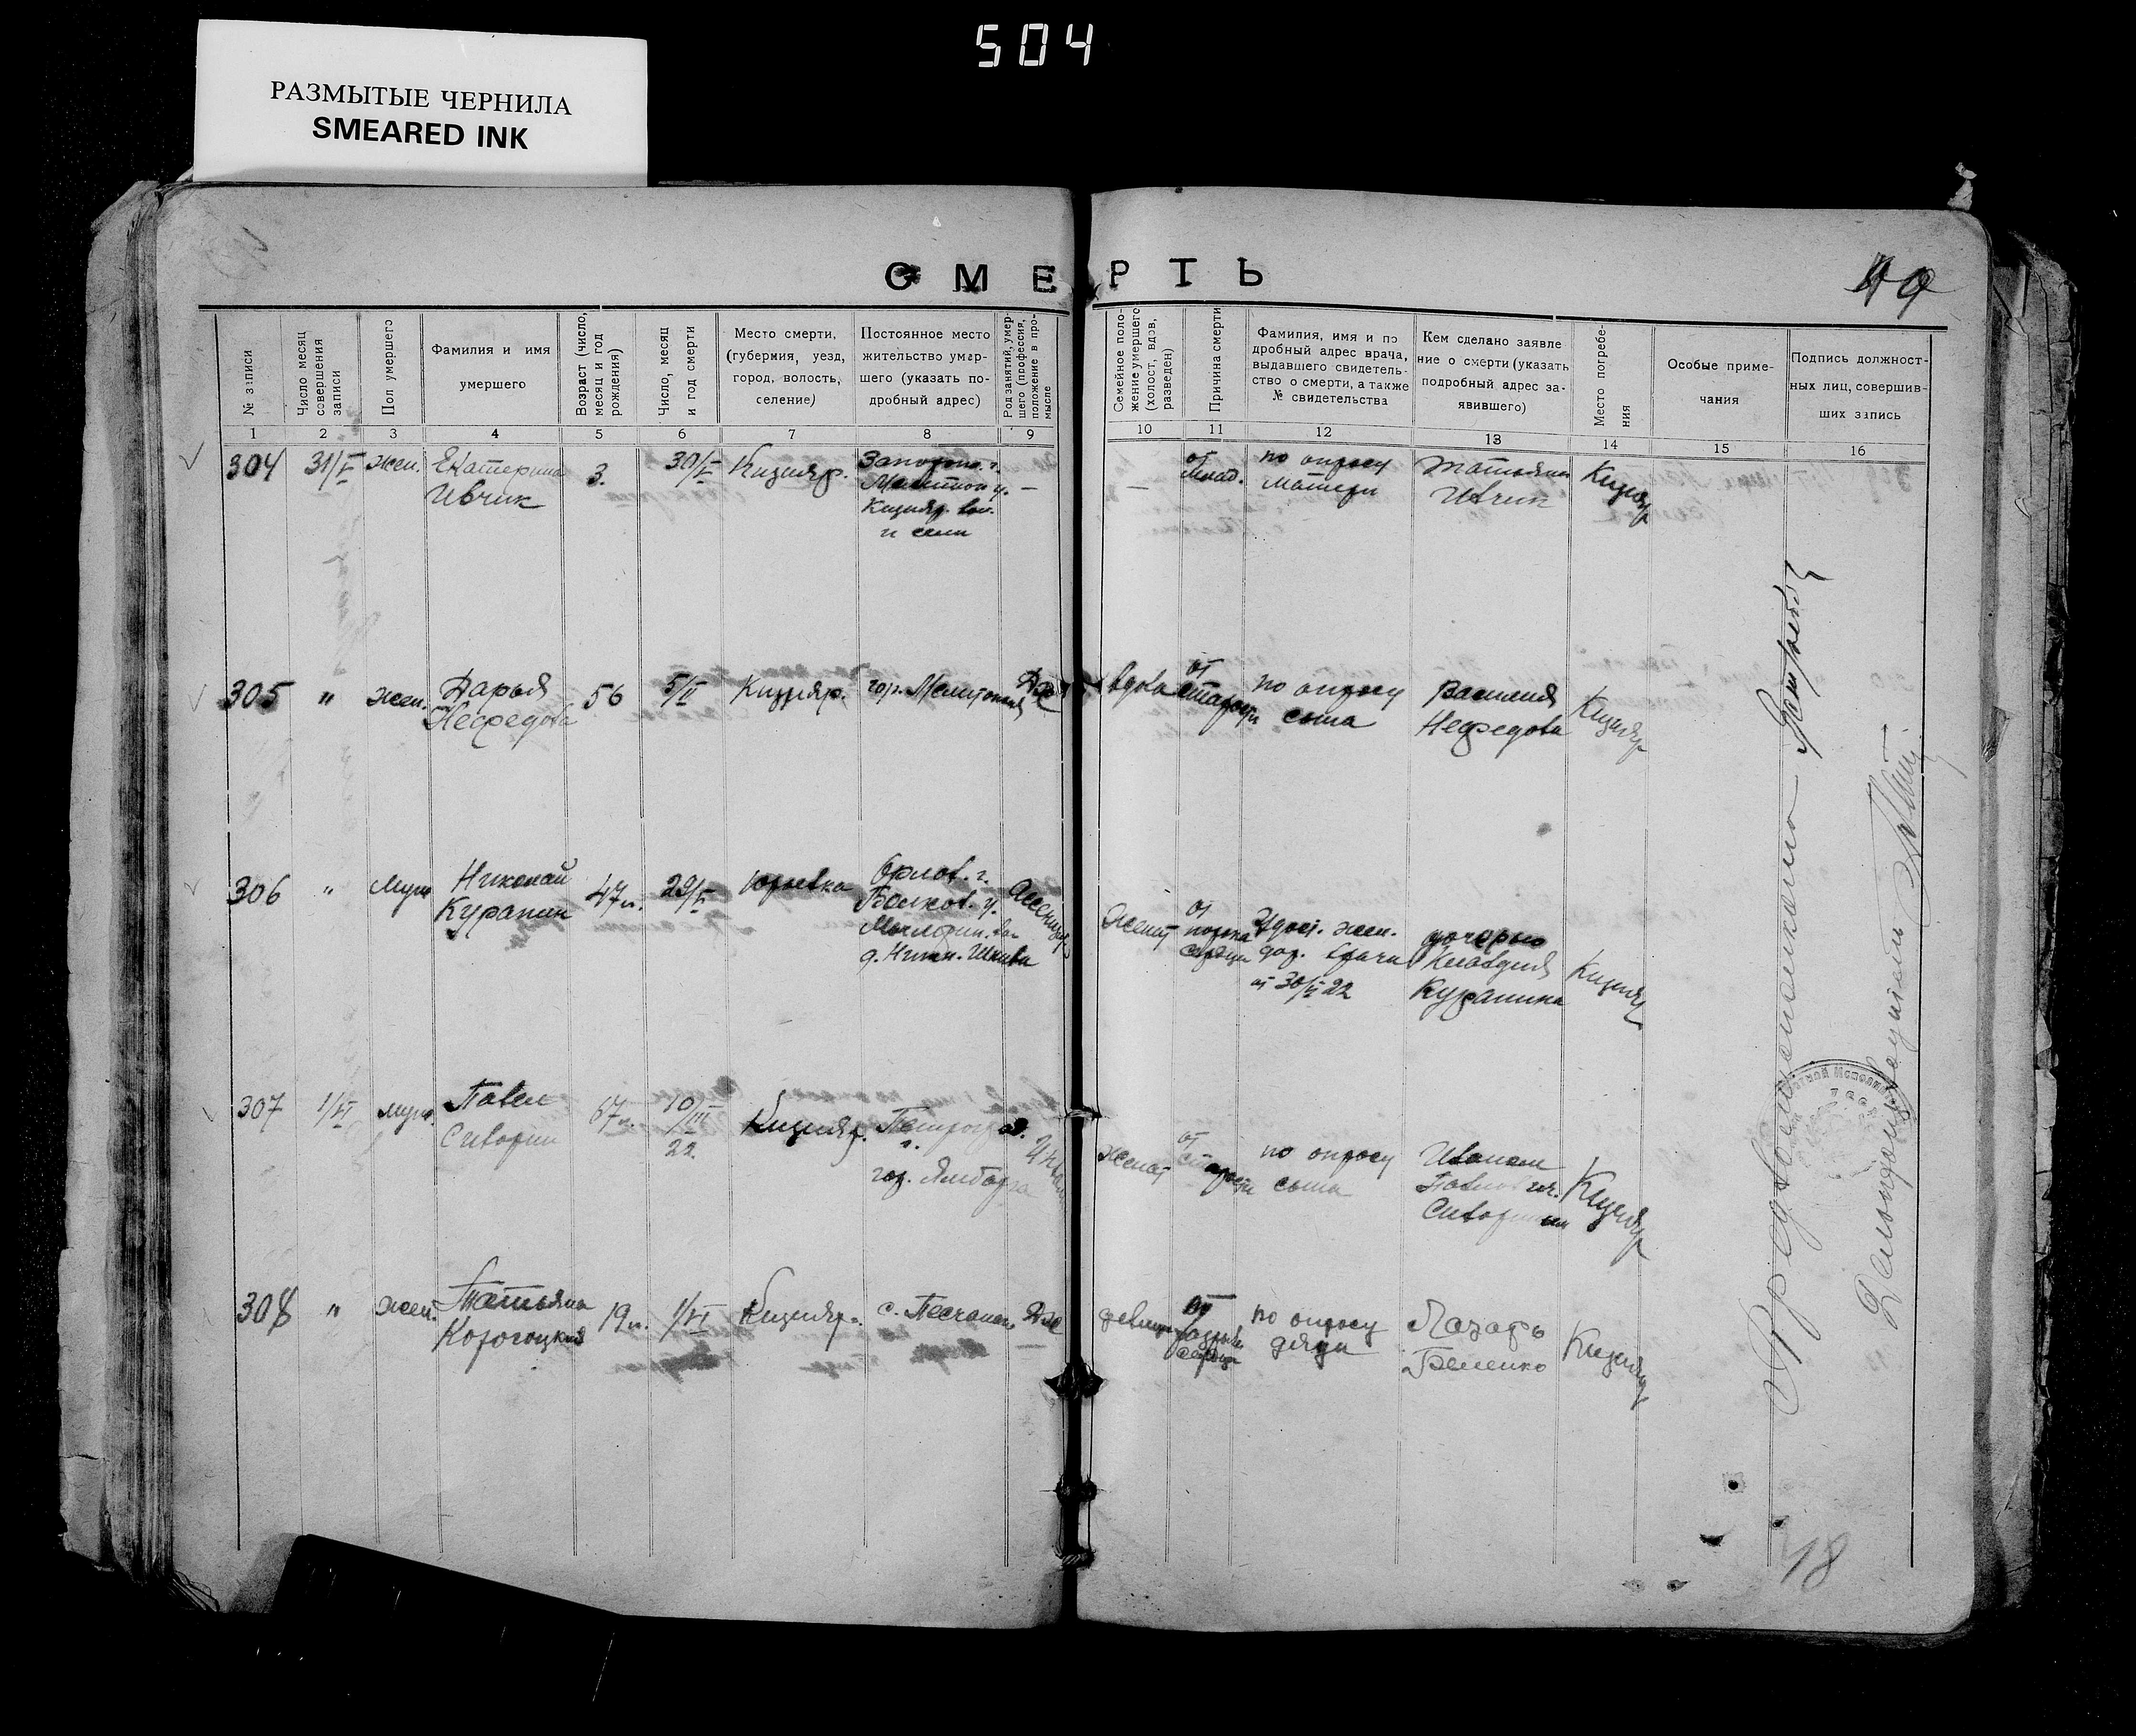 504
РАЗМЫТЫЕ ЧЕРНИЛА
SMEARED INK
СМЕРТЬ
49
№ записи
Число месяц
совершения
записи
Пол умершего
Фамилия и имя
умершего
Возраст (число,
месяц и год
рождения)
Число, месяц
и год смерти
Место смерти,
(губермия, уезд,
город, волость,
селение)
Постоянное место
жительство умер-
шего (указать по-
дробный адрес)
Род занятий, умер-
шего (профессия,
положение в про-
мысле
Семейное поло-
жение умершего
(холост, вдов,
разведен)
Причина смерти
Фамилия, имя и по
дробный адрес врача,
выдавшего свидетель-
ство о смерти, а также
№ свидетельства
Кем сделано заявле
ние о смерти (указать
подробный адрес за-
явившего)
Место погребе-
ния
Особые приме-
чания
Подпись должност-
ных лиц, совершив-
ших запись
1 2 3 4 5 6 7 8 9 10 11 12 13 14 15 16
304 31/V жен. Екатерина
Ивчик
3. 30/V Кизияр.
Запорож. г.
Мелитоп у.
Кизияр. вол.
и сели
—
—
от
Млад.
по опросу
матери
Татьяна
Ивчик
Кизияр
305 " жен. Дарья
Нефедова
56 5/V Кизияр. гор. Мелитополь Д/х
вдова
от
старости
по опросу
сына
Василия
Нефедова
Кизияр
306 " Муж Николай
Курапин
47 л. 29/V Юрьевка
Орлов. г.
Болхов. у.
д. Нижн.
женат
от
порока
сердца
Удост. жел.
дор. врача
от 30/V 22
дочерью
Клавдия
Курапина
Кизияр
307 1/VI муж. Павел
Сиворин
67 л. 10/III
22
Кизияр. Петроград.
г.
гор. Ямбурга
женат
от
старости
по опросу
сына
Иваном
Павлович.
Сивориным
Кизияр
308 " жен. Татьяна
Корогоцкая
19 л. 1/VI Кизияр. с. Песчаное Д/х
девица
от
разрыва
сердца
по опросу
дяди
Лазарь
Беленко
Кизияр
Делопроизводитель
48